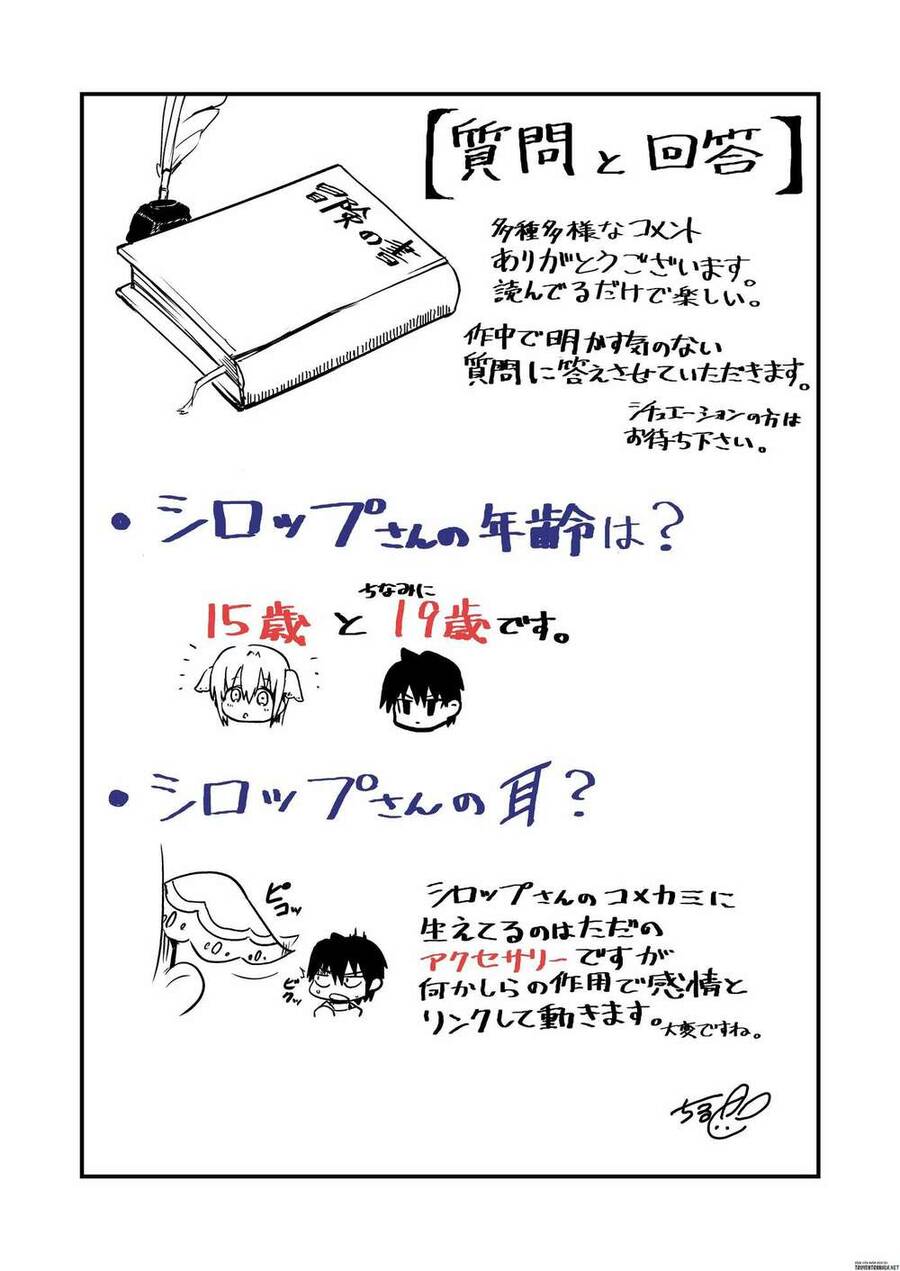 【質問と回答】
冒険の書
多種多様なコメント
ありがとうございます。
読んでるだけで楽しい。
作中で明かす気のない
質問に答えさせていただきます。
シチュエーションの方は
お待ち下さい。
・シロップさんの年齢は?
ちなみに
15歳と19歳です。
・シロップさんの耳?
ピコッ
ビクッ
シロップさんのコメカミに
生えてるのはただの
アクセサリーですが
何かしらの作用で感情と
リンクして動きます。大変ですね。
TRUYENTORANGA.NET